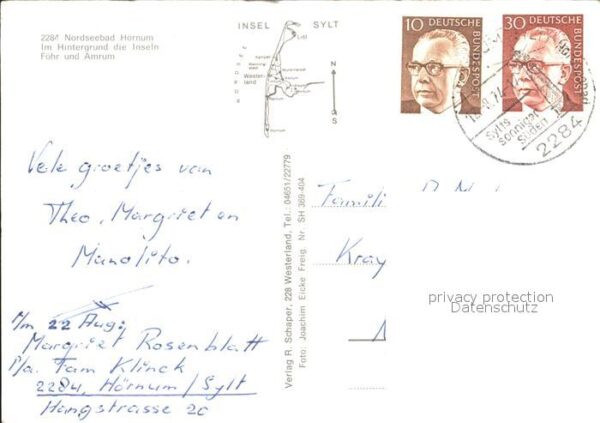 2284 Nordseebad Hörnum
Im Hintergrund die Inseln
Föhr und Amrum
INSEL SYLT
NORDSEE
List
Westerland
Hörnum
N
S
10 DEUTSCHE BUNDESPOST
30 DEUTSCHE BUNDESPOST
Sylts
sonniger
Süden
2284
Vele groetjes van
Theo, Margriet en
Manolito.
t/m 22 Aug:
Margriet Rosenblatt
P/a. Fam Klinck
2284, Hörnum/Sylt
Hangstrasse 20
Verlag R. Schaper, 228 Westerland, Tel.: 04651/22779
Foto: Joachim Eicke Freig. Nr. SH 369-404
Famili
Kray
privacy protection
Datenschutz